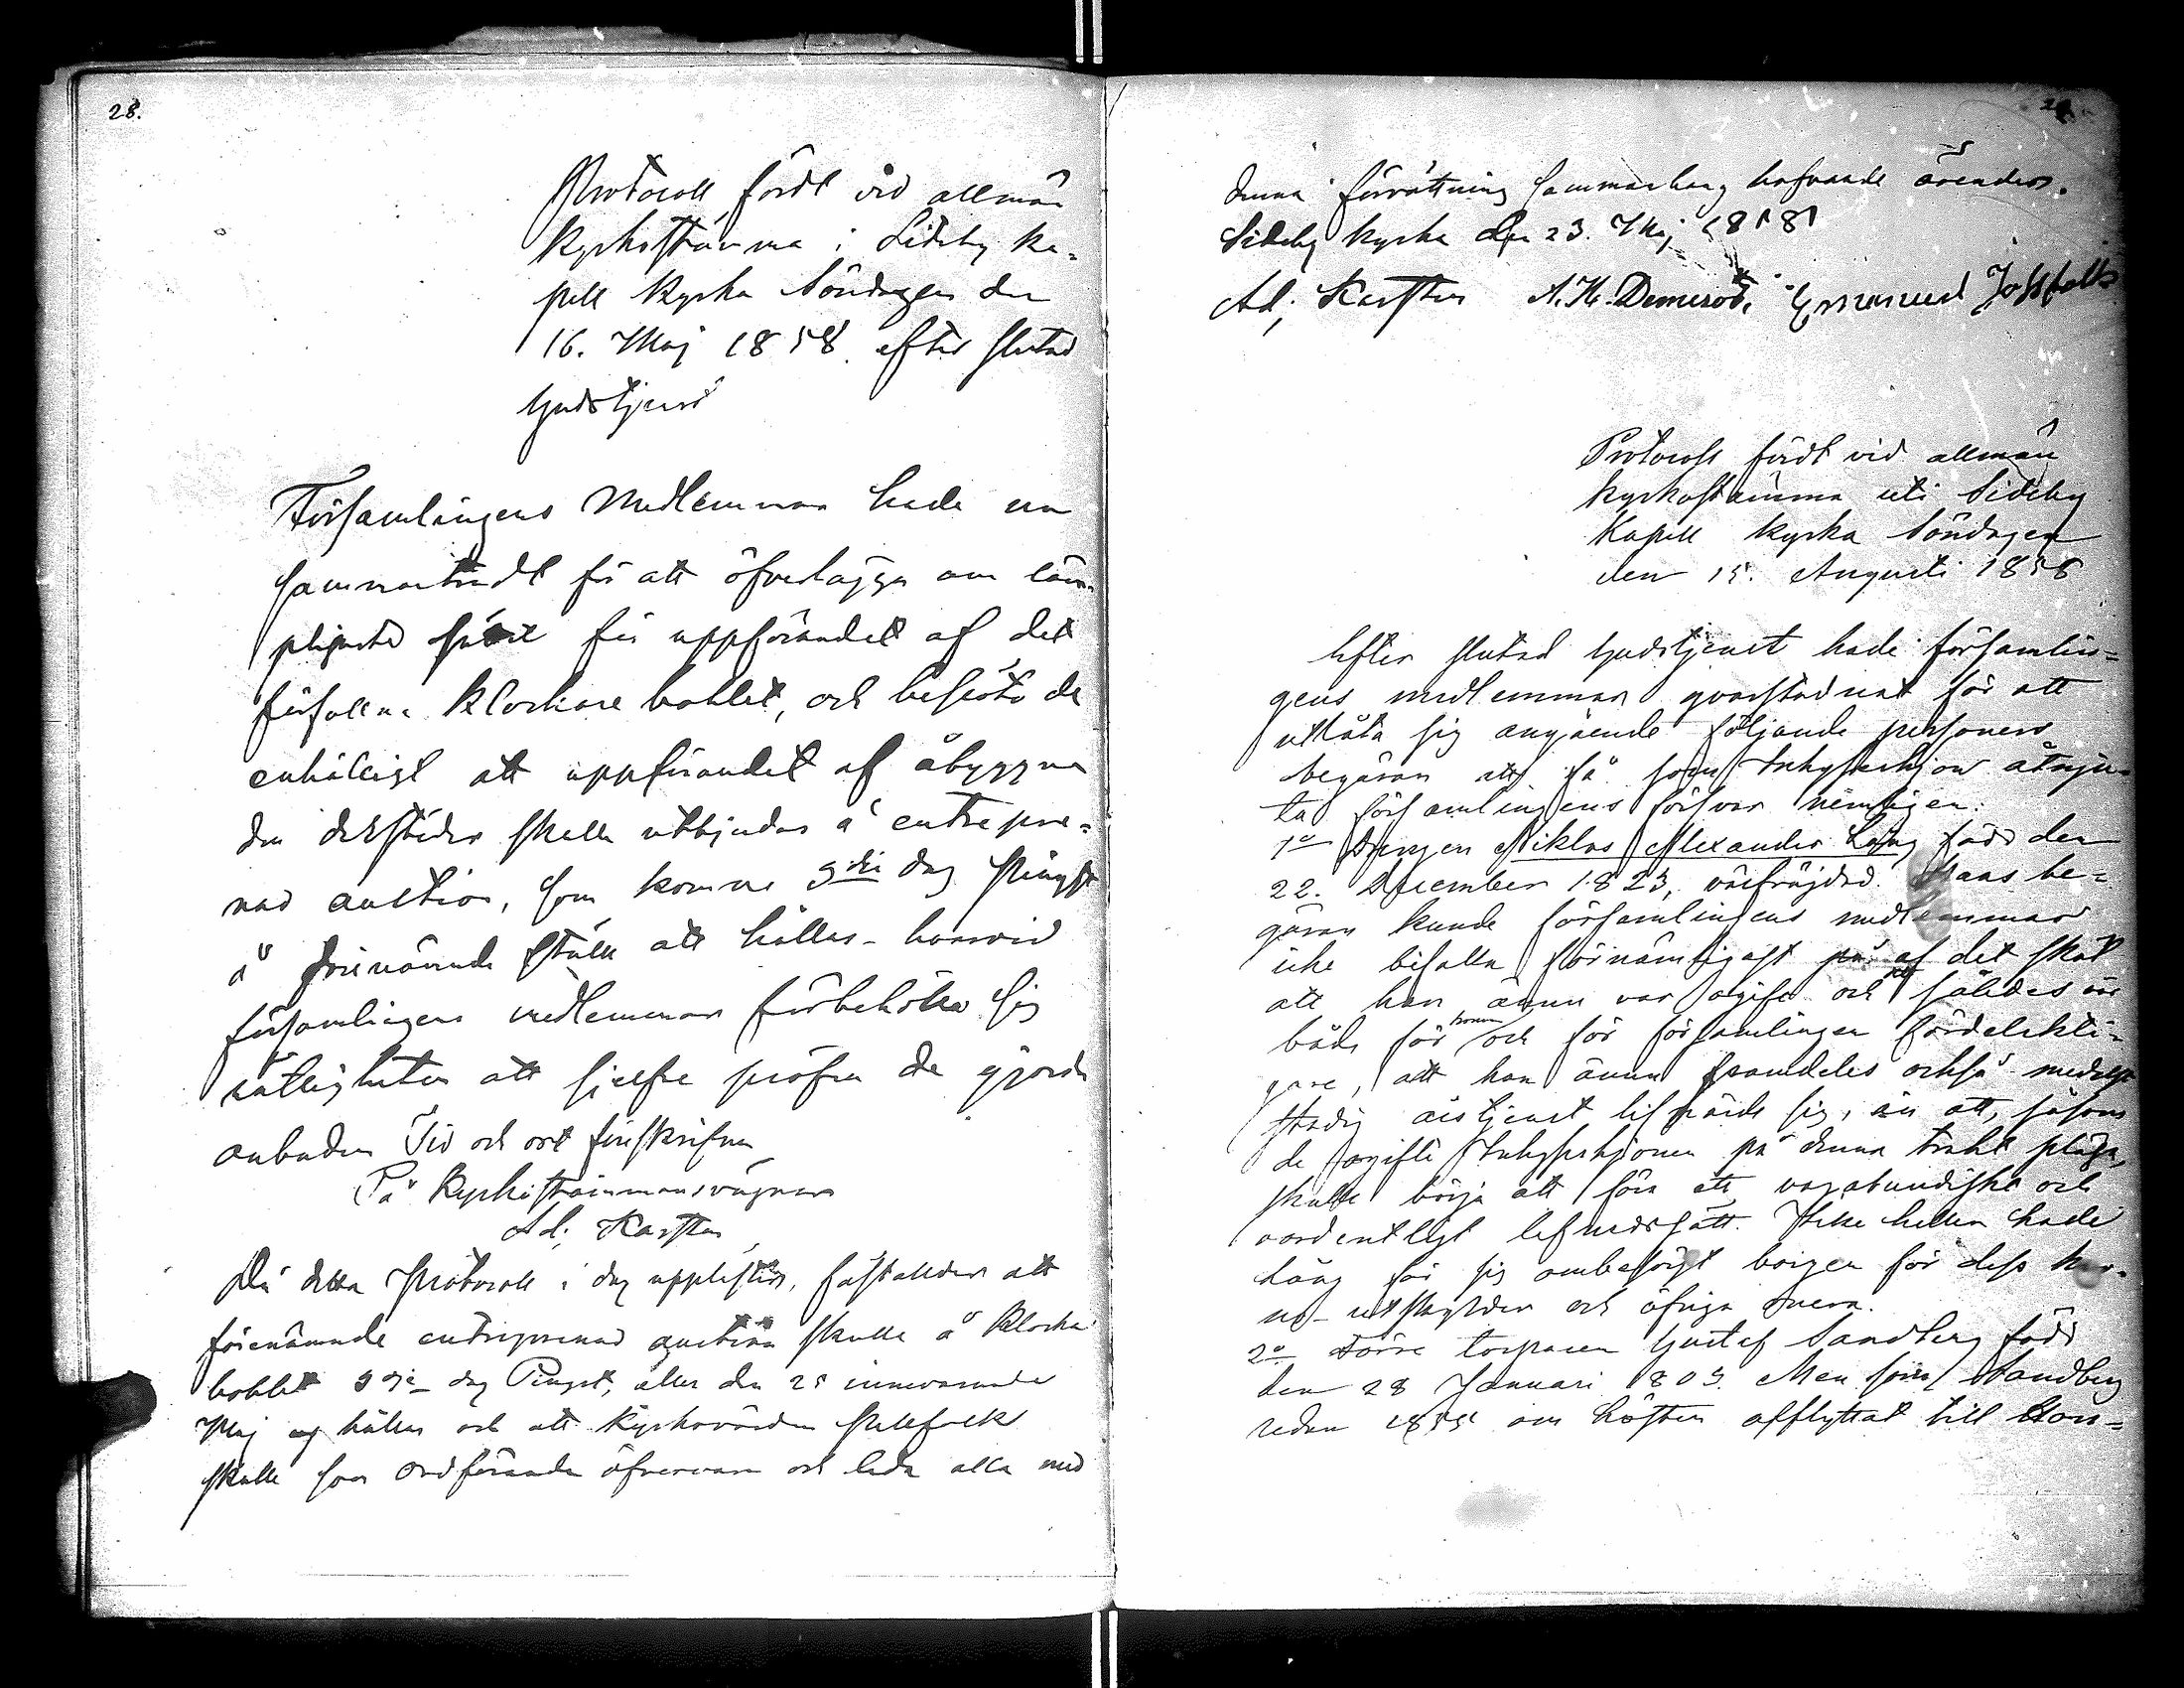 28.
Protocoll fördt vid allmän
kyrkostämma i Sideby ka-
pell kyrka Söndagen den
16. Maj 1858 efter slutad
Gudstjenst
Församlingens Medlemmar hade nu
sammanträdt för att öfverlägga om läm-
pligaste sättet för uppförandet af det
förfallna klockare bohlet, och beslöto de
enhälligt att uppförandet af åbyggna
der dehstädes skulle utbjudas å entrepre-
nad auction, som komme 3dje dag Pingst
å förenämnde ställe att hållas - hvarvid
församlingens medlemmar förbehöllo sig
rättigheten att sjelfve pröfva de gjorde
anbuden Tid och ort förskrifne
På Kyrkostämmansvägnar
Ad; Karsten
Då detta Protocoll i dag upplästes, fastställdes att
förenämnde entreprenad auction skulle å Klockar
bohlet 3dje dag Pingst, eller den 25 innevarande
Maj och hållas och att Kyrkovärden
skulle som Ordförande öfvervara och leda alla med
denna förrättning sammanhang hafvande ärenden.
Sideby kyrka den 23. Maj 1858
Ad; Karsten A. H. Emanuel
Protocoll fördt vid allmän
kyrkostämma uti Sideby
Kapell kyrka Söndagen
den 15. Augusti 1858
Efter slutad Gudstjenst hade församlin-
gens medlemmar qvarstadnat för att
utlåta sig angående följande personers
begäran att få som Inhyseshjon åtnju-
ta församlingens försvar nemligen:
1o Drengen Niklas Alexander Lång född den
22. December 1823, välfräjdad. Hans be-
gäran kunde församlingens medlemmar
icke bifalla förnämligast af det skäl
att han ännu var ogift och således
både för honom och för församlingen fördelakti-
gare, att han ännu framdeles också medelst
stadig årstjenst lifnärde sig, än att, såsom
de ogifte Inhyseshjonen på denna trakt pläga,
skulle börja att föra ett vagabundiskt och
oordentligt lefnadssätt. Icke heller hade
Lång för sig ombesörgt borgen för dess kro-
no utskylder och öfriga onera.
2o Förre torparen Gustaf Sandberg född
den 28 Januari 1803. Men som Sandberg
redan 1855 om hösten afflyttat till